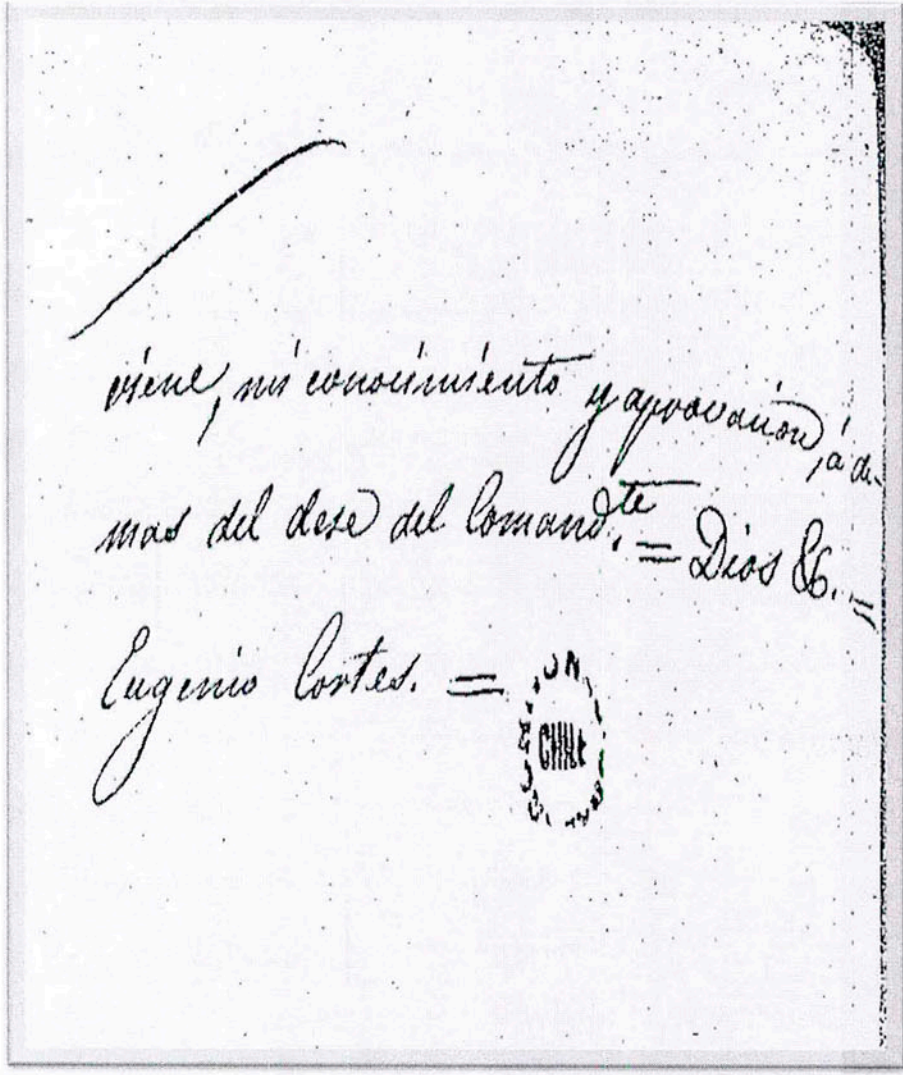 viene, mi conocimiento y aprovacion, á de-
mas del dese del Comand.te = Dios &. =
Eugenio Cortes. =
CHILE